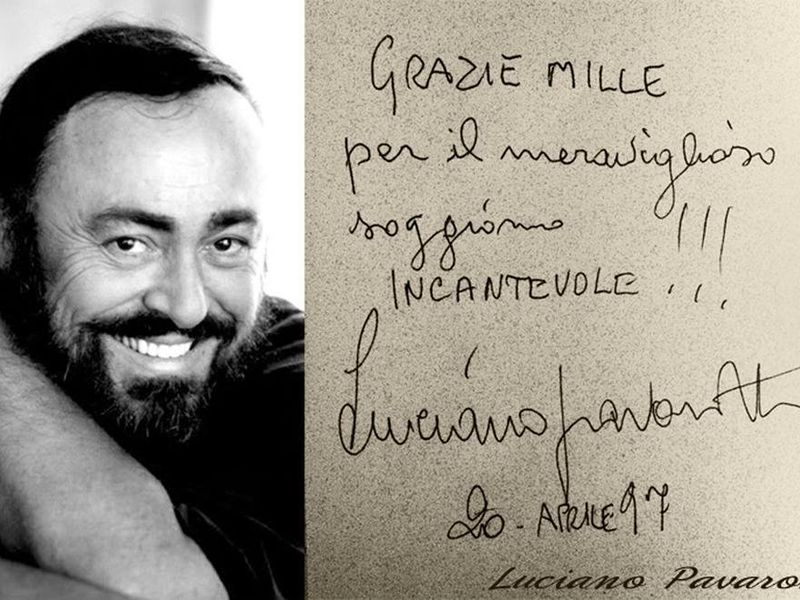 GRAZIE MILLE
per il meraviglioso
soggiorno !!!
INCANTEVOLE !!!
Luciano Pavarotti
20 - APRILE 97
Luciano Pavaro